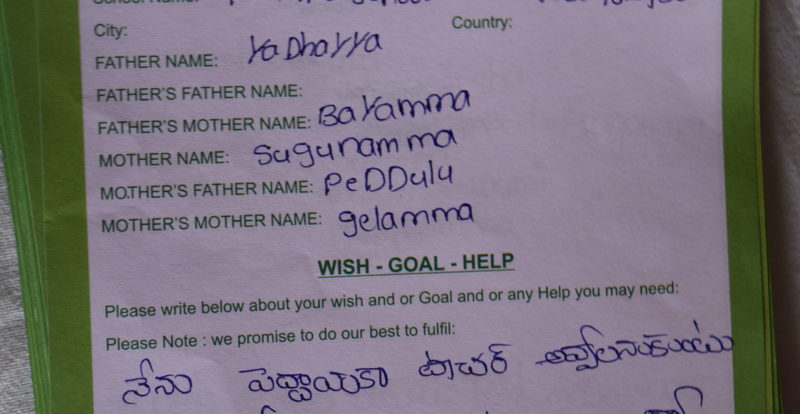 City: Country:
FATHER NAME: yaDhayya
FATHER'S FATHER NAME:
FATHER'S MOTHER NAME: Bayamma
MOTHER NAME: Sugunamma
MOTHER'S FATHER NAME: PeDDulu
MOTHER'S MOTHER NAME: gelamma
WISH - GOAL - HELP
Please write below about your wish and or Goal and or any Help you may need:
Please Note : we promise to do our best to fulfil:
నేను పెద్దాయకా టీచర్